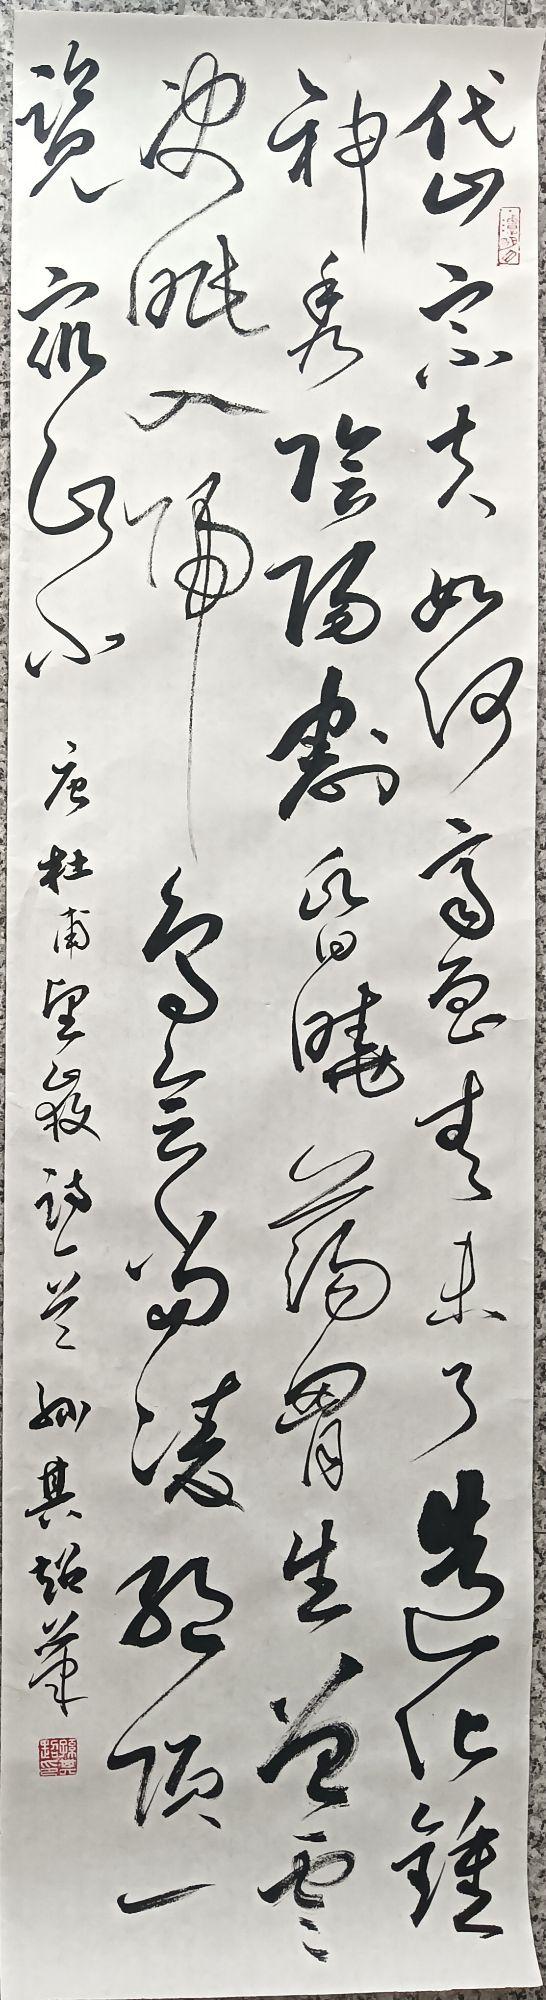 岱宗夫如何齊魯青未了造化鍾
神秀陰陽割昏曉蕩胸生曾雲
決眥入歸鳥會當凌絕頂一
覽眾山小
唐杜甫望嶽詩一首 孫其超筆